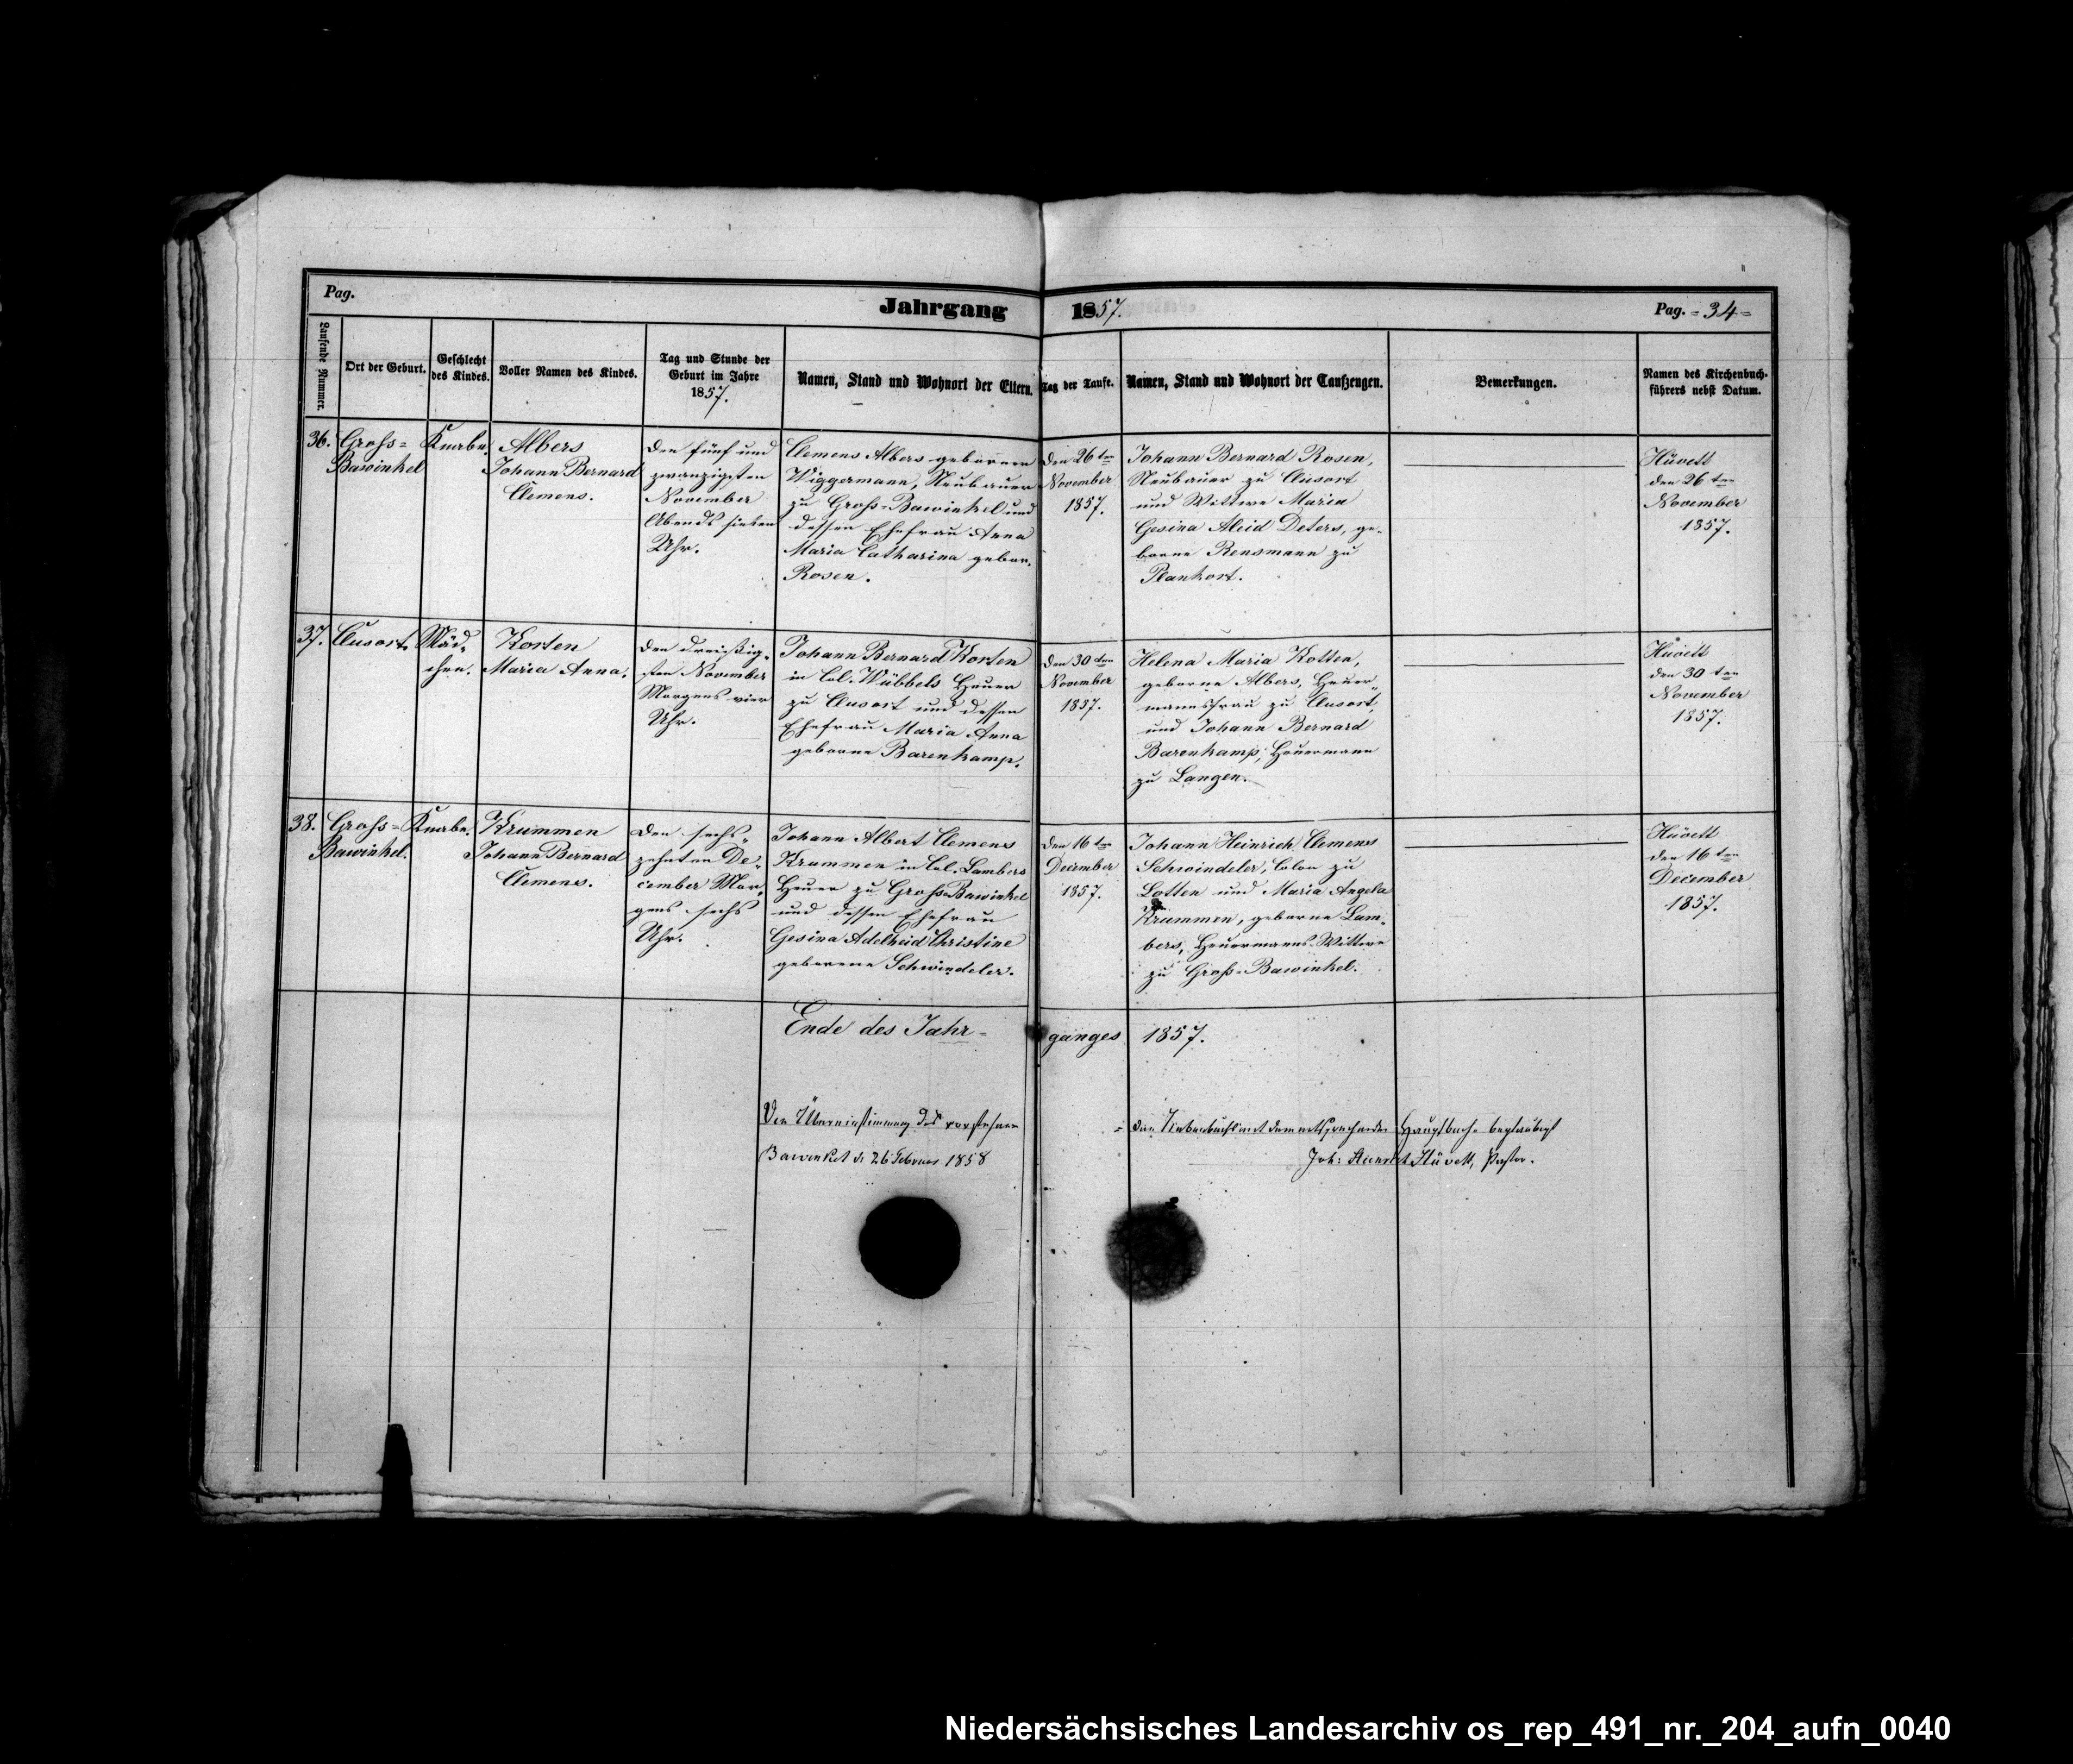 Pag.
Jahrgang 1857.
Pag. = 34 =
Laufende Nummer.
Ort der Geburt.
Geschlecht
des Kindes.
Voller Namen des Kindes.
Tag und Stunde der
Geburt im Jahre
1857.
Namen, Stand und Wohnort der Eltern.
Tag der Taufe.
Namen, Stand und Wohnort der Taufzeugen.
Bemerkungen.
Namen des Kirchenbuch-
führers nebst Datum.
36.
Groß=
Bawinkel
Knabe.
Albers
Johann Bernard
Clemens.
Den fünf und
zwanzigsten
November
Abends sieben
Uhr.
Clemens Albers geborener
Wiggermann, Neubauer
zu Groß-Bawinkel und
dessen Ehefrau Anna
Maria Catharina gebor.
Rosen.
Den 26ten
November
1857.
Johann Bernard Rosen,
Neubauer zu Clusort
und Wittwe Maria
Gesina Aleid Deters, ge-
borne Rensmann zu
Plankort.
Hüvett
den 26ten
November
1857.
37.
Clusort.
Mäd-
chen.
Korten
Maria Anna.
Den dreißig-
sten November
Morgens vier
Uhr.
Johann Bernard Korten
in Col. Wübbels Heuer
zu Clusort und dessen
Ehefrau Maria Anna
geborne Barenkamp.
Den 30ten
November
1857.
Helena Maria Kotten,
geborne Albers, Heuer-
mannsfrau zu Clusort,
und Johann Bernard
Barenkamp, Heuermann
zu Langen.
Hüvett
den 30ten
November
1857.
38.
Groß=
Bawinkel.
Knabe.
Krummen
Johann Bernard
Clemens.
Den sechs-
zehnten De-
cember Mor-
gens sechs
Uhr.
Johann Albert Clemens
Krummen in Col. Lambers
Heuer zu Groß-Bawinkel
und dessen Ehefrau
Gesina Adelheid Christine
geborene Schwindeler.
Den 16ten
December
1857.
Johann Heinrich Clemens
Schwindeler, Colon zu
Lotten und Maria Angela
Krummen, geborne Lam-
bers, Heuermanns-Wittwe
zu Groß-Bawinkel.
Hüvett
den 16ten
December
1857.
Ende des Jahr=
ganges 1857.
Die Übereinstimmung des vorstehen=
den Nebenbuchs mit dem entsprechenden Hauptbuche beglaubigt
Bawinkel d. 26 Februar 1858
Joh: Hüvett, Pastor.
Niedersächsisches Landesarchiv os_rep_491_nr._204_aufn_0040